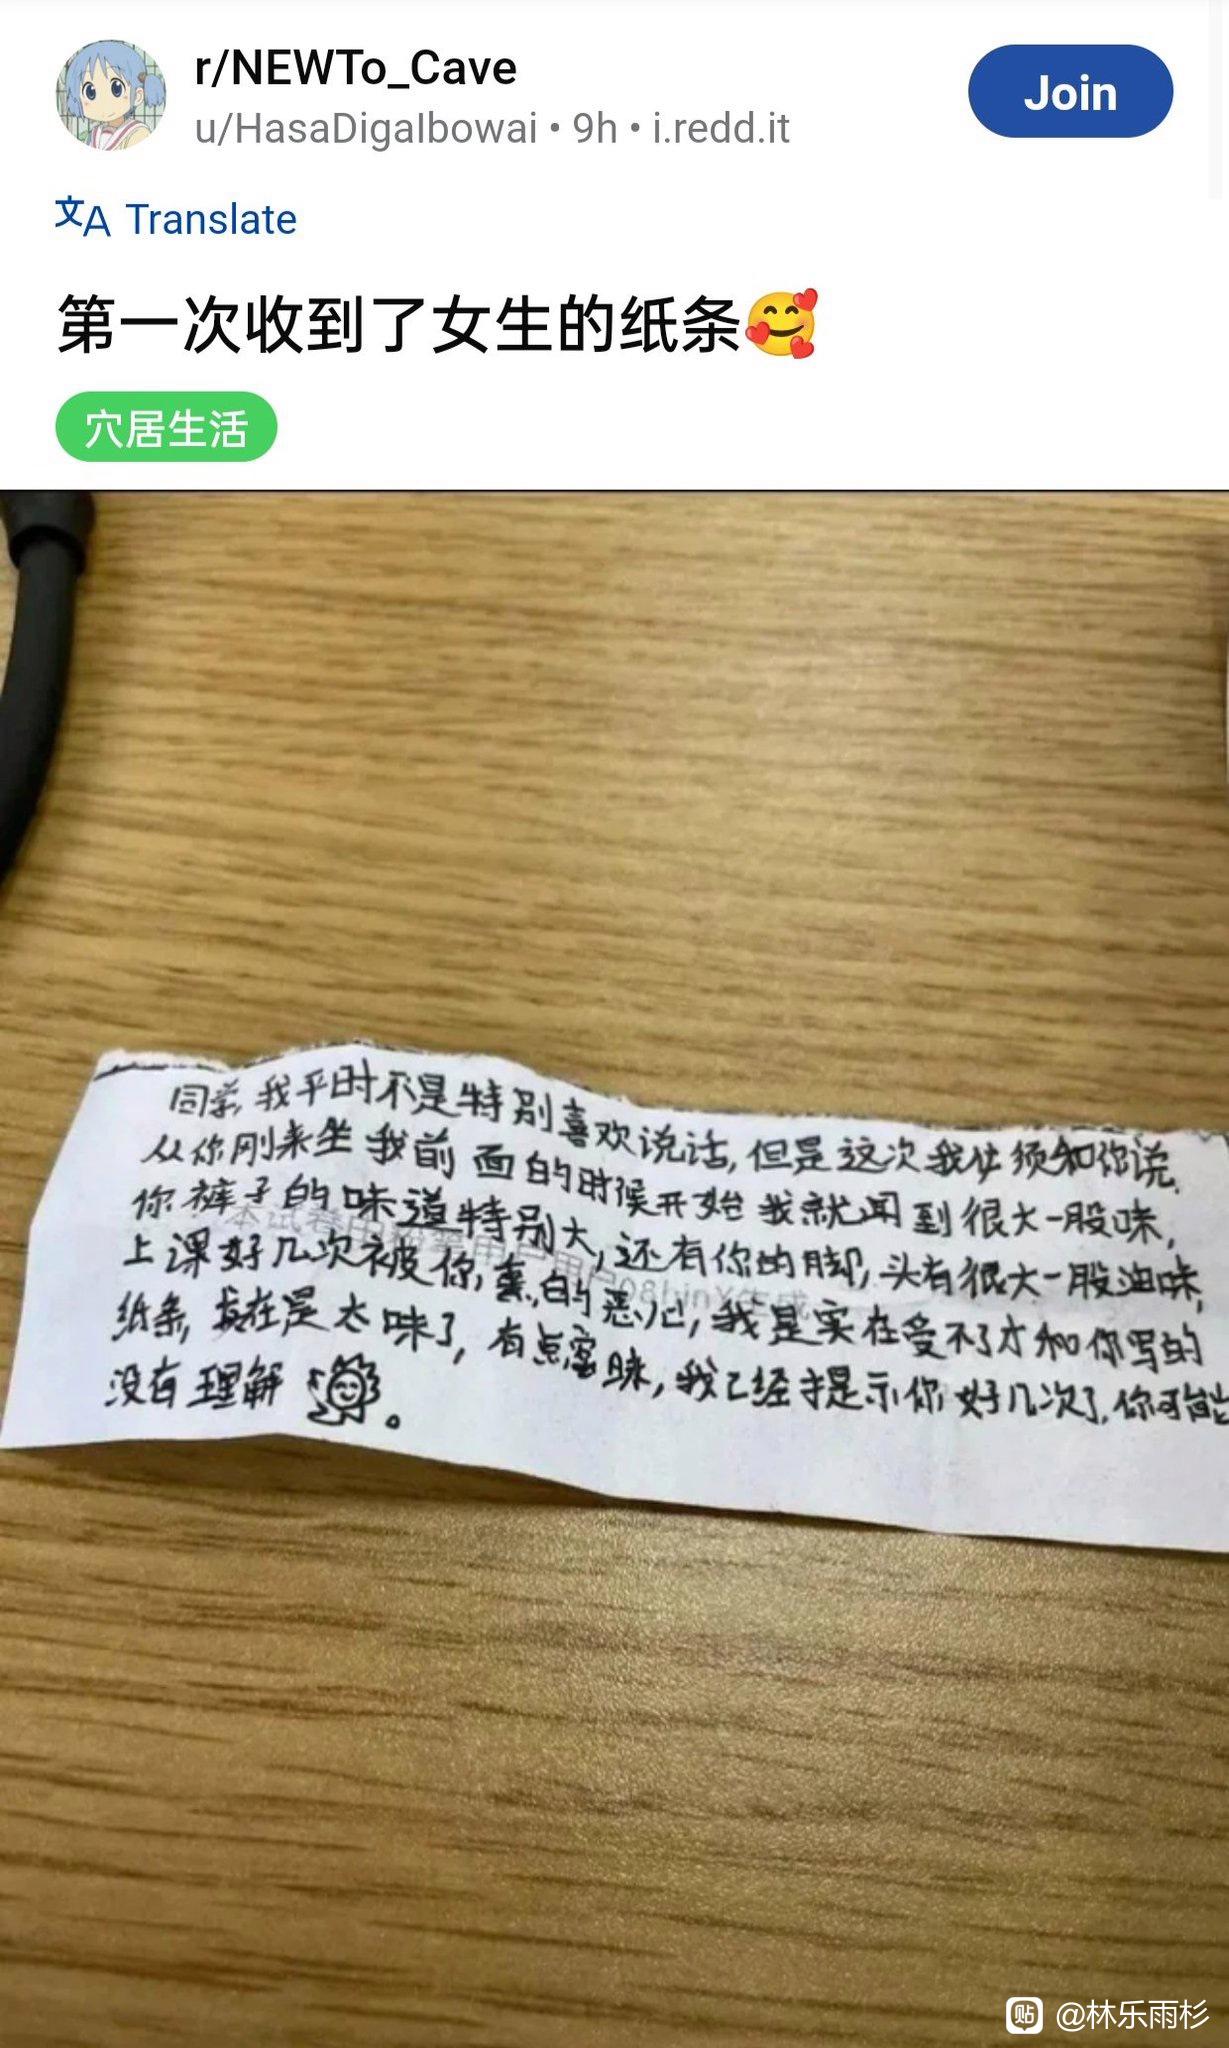 r/NEWTo_Cave
Join
u/HasaDigaIbowai • 9h • i.redd.it
文A Translate
第一次收到了女生的纸条🥰
穴居生活
同学,我平时不是特别喜欢说话,但是这次我必须和你说.
从你刚来坐我前面的时候开始我就闻到很大一股味,
你裤子的味道特别大,还有你的脚,头有很大一股油味,
上课好几次被你,熏的恶心,我是实在受不了才和你写的
纸条,实在是太味了,有点窒脒,我已经提示你好几次了,你可能
没有理解。
本试卷由 用户 生成
贴 @林乐雨杉